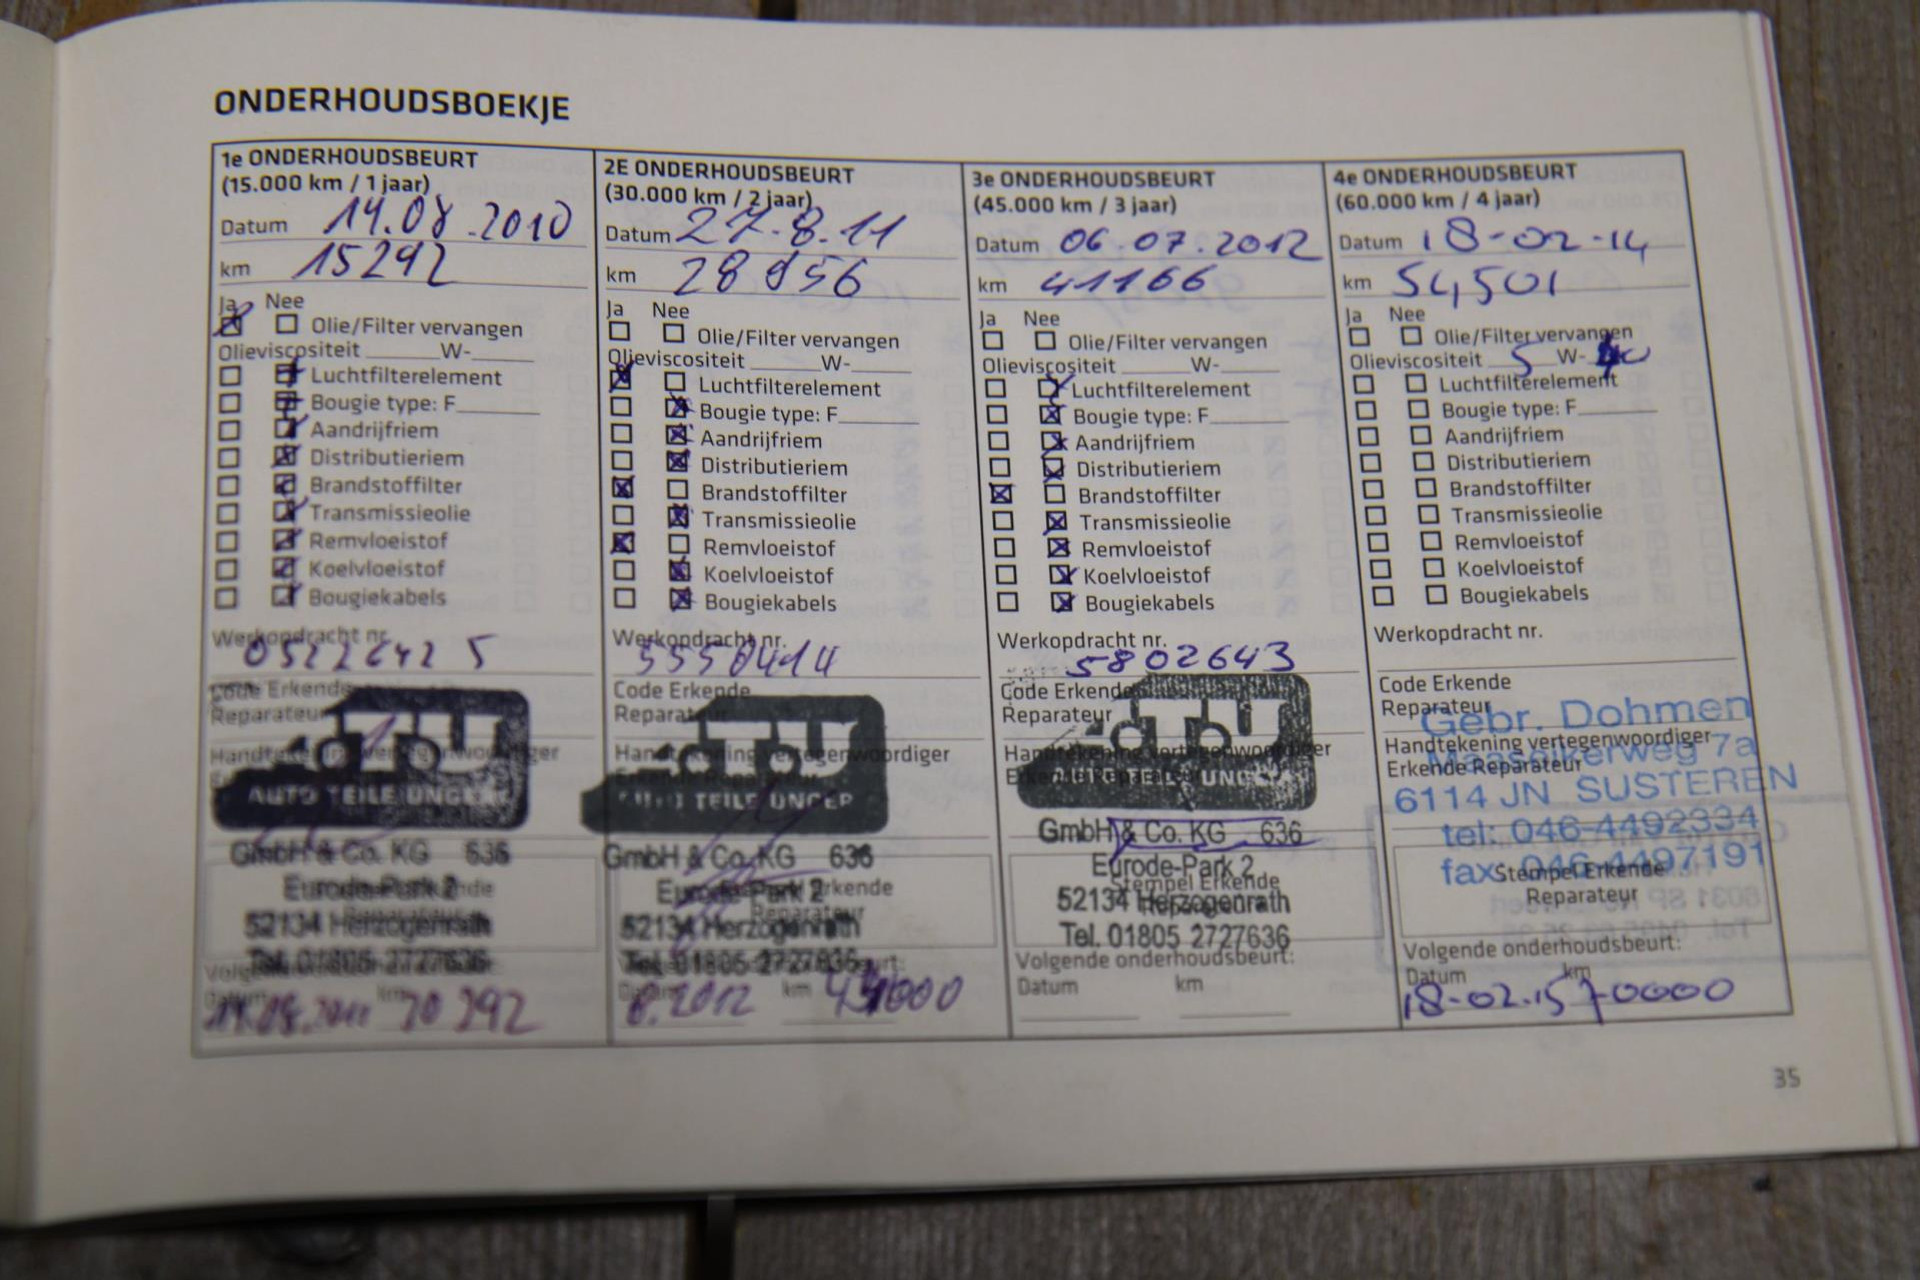 ONDERHOUDSBOEKJE
1e ONDERHOUDSBEURT
(15.000 km / 1 jaar)
Datum 14.08.2010
km 15292
Ja Nee
Olie/Filter vervangen
Olieviscositeit ______W-______
Luchtfilterelement
Bougie type: F______
Aandrijfriem
Distributieriem
Brandstoffilter
Transmissieolie
Remvloeistof
Koelvloeistof
Bougiekabels
Werkopdracht nr.
Code Erkende
Reparateur
Handtekening vertegenwoordiger
AUTO TEILE UNGER
GmbH & Co. KG 636
Eurode-Park 2
52134 Herzogenrath
Tel. 01805 2727636
Datum km
2E ONDERHOUDSBEURT
(30.000 km / 2 jaar)
Datum 27.8.11
km 28956
Ja Nee
Olie/Filter vervangen
Olieviscositeit ______W-______
Luchtfilterelement
Bougie type: F______
Aandrijfriem
Distributieriem
Brandstoffilter
Transmissieolie
Remvloeistof
Koelvloeistof
Bougiekabels
Werkopdracht nr.
5550414
Code Erkende
Reparateur
Handtekening vertegenwoordiger
Erkende Reparateur
AUTO TEILE UNGER
GmbH & Co. KG 636
Eurode-Park 2
Erkende
Reparateur
52134 Herzogenrath
Tel. 01805 2727636
8.2012 km
3e ONDERHOUDSBEURT
(45.000 km / 3 jaar)
Datum 06.07.2012
km 41166
Ja Nee
Olie/Filter vervangen
Olieviscositeit ______W-______
Luchtfilterelement
Bougie type: F______
Aandrijfriem
Distributieriem
Brandstoffilter
Transmissieolie
Remvloeistof
Koelvloeistof
Bougiekabels
Werkopdracht nr.
5802643
Code Erkende
Reparateur
Handtekening vertegenwoordiger
AUTO TEILE UNGER
GmbH & Co. KG 636
Eurode-Park 2
Stempel Erkende
Reparateur
52134 Herzogenrath
Tel. 01805 2727636
Volgende onderhoudsbeurt:
Datum km
4e ONDERHOUDSBEURT
(60.000 km / 4 jaar)
Datum 18-02-14
km 54,501
Ja Nee
Olie/Filter vervangen
Olieviscositeit 5 W-40
Luchtfilterelement
Bougie type: F______
Aandrijfriem
Distributieriem
Brandstoffilter
Transmissieolie
Remvloeistof
Koelvloeistof
Bougiekabels
Werkopdracht nr.
Code Erkende
Reparateur
Gebr. Dohmen
Handtekening vertegenwoordiger
Maaseikerweg 7a
Erkende Reparateur
6114 JN SUSTEREN
tel: 046-4492334
fax: 046-4497191
Stempel Erkende
Reparateur
Volgende onderhoudsbeurt:
Datum km
18-02-15 70000
35